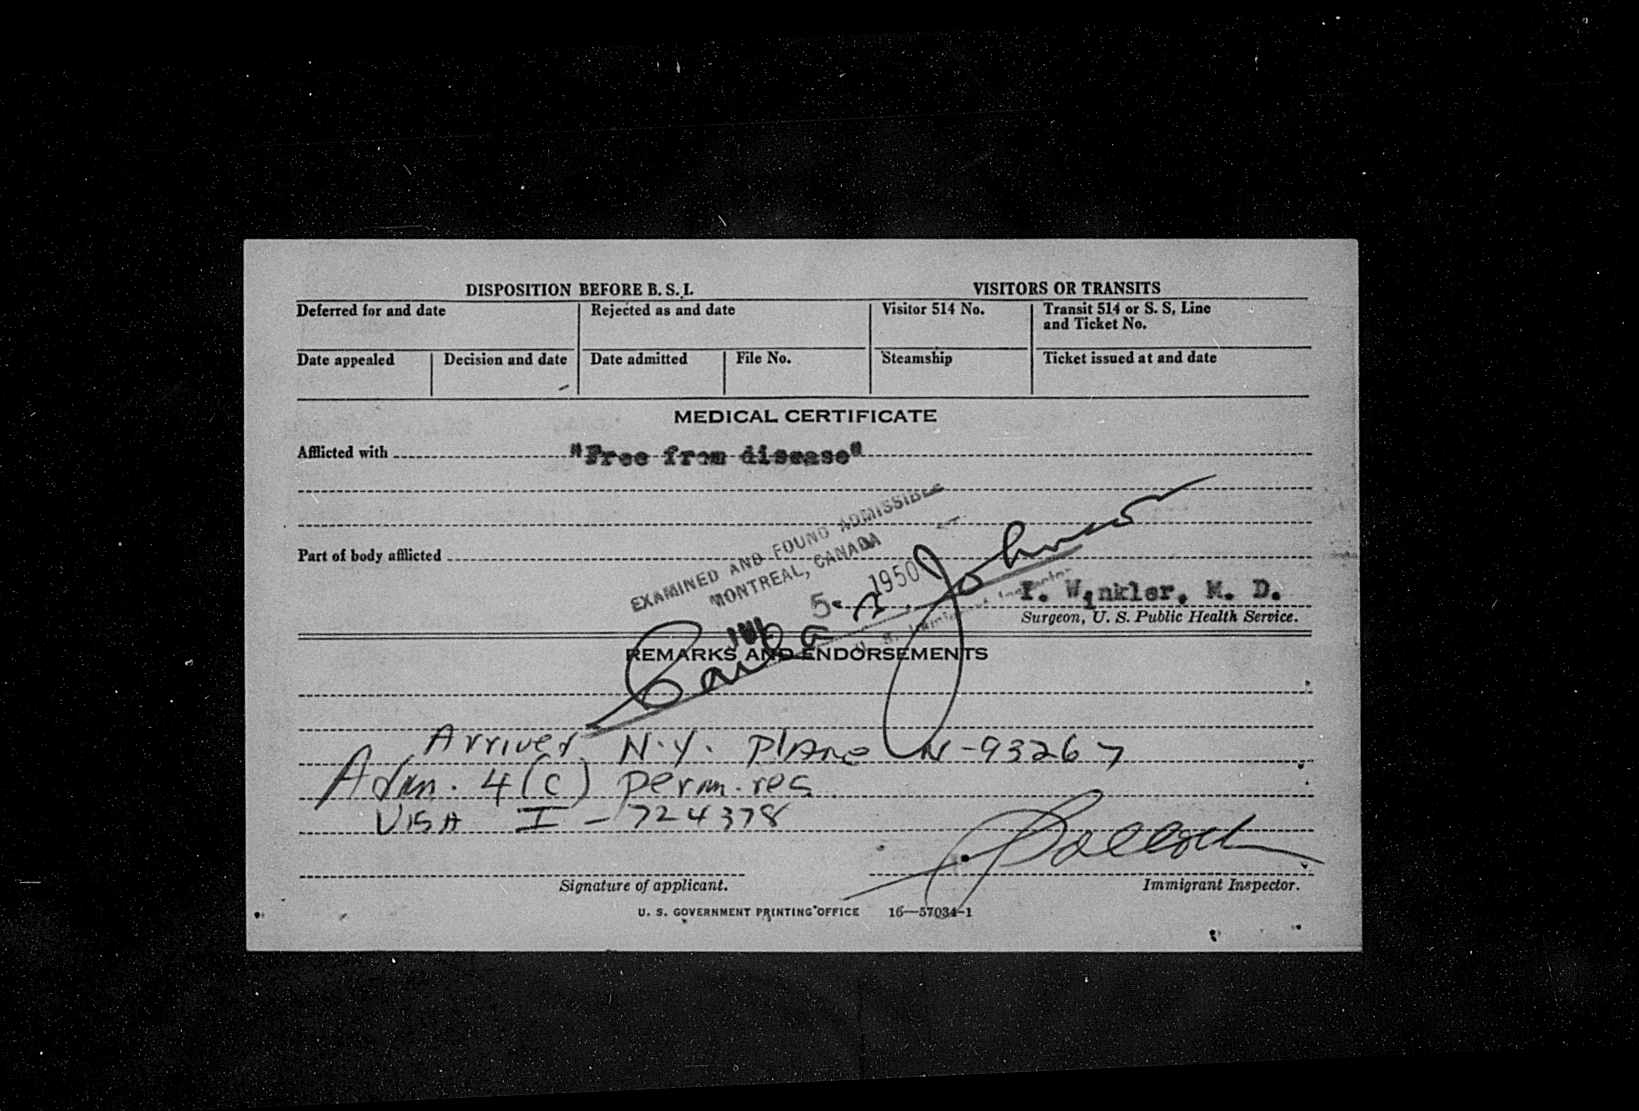 DISPOSITION BEFORE B. S. I. VISITORS OR TRANSITS
Deferred for and date Rejected as and date Visitor 514 No. Transit 514 or S. S. Line
and Ticket No.
Date appealed Decision and date Date admitted File No. Steamship Ticket issued at and date
MEDICAL CERTIFICATE
Afflicted with "Free from disease"
EXAMINED AND FOUND ADMISSIBLE
MONTREAL, CANADA
Part of body afflicted
5 1950
Johnson
Winkler, M. D.
Surgeon, U. S. Public Health Service.
REMARKS AND ENDORSEMENTS
Arrived N.Y. Plane N-93267
Adm. 4(c) perm. res
VISA I-724378
Signature of applicant. Immigrant Inspector.
U. S. GOVERNMENT PRINTING OFFICE 16—57034-1